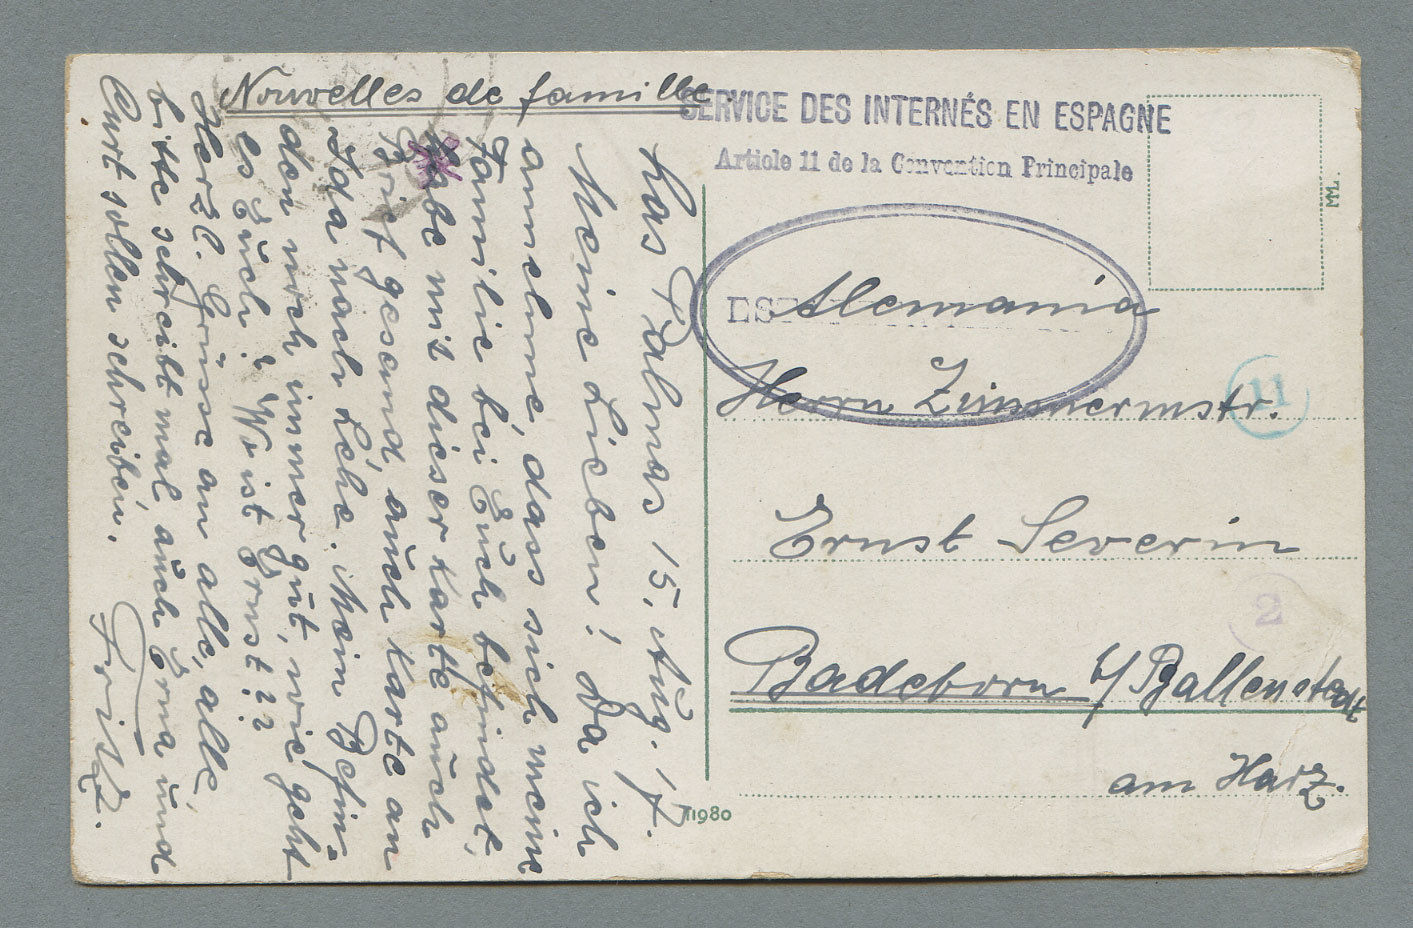 Nouvelles de famille
SERVICE DES INTERNÉS EN ESPAGNE
Article 11 de la Convention Principale
MM.
ES
Alemania
11
Herrn Zimmermstr.
Ernst Severin
2
Badeborn b/Ballenstedt
am Harz.
11980
Las Palmas 15. Aug. 17.
Meine Lieben! Da ich
annehme, dass sich meine
Familie bei Euch befindet,
habe mit dieser Karte auch
Brief gesand, auch Karte an
Ida nach Lehe. Mein Befin-
den noch immer gut, wie geht
es Euch? Wo ist Ernst??
Herzl. Grüsse an alle, alle,
bitte schreibt mal, auch Erna und
Curt sollen schreiben.
Fritz.